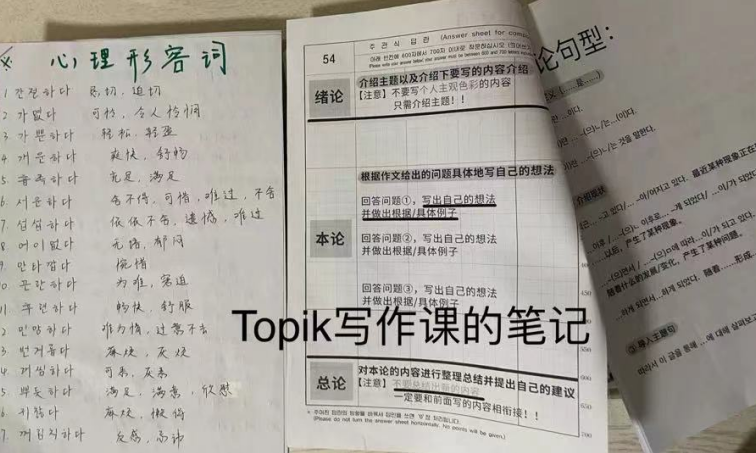 心理形容词
1 간절하다 易切, 迫切
2 가엾다 可怜, 令人怜悯
3 가뿐하다 轻松, 轻盈
4 개운하다 爽快, 舒畅
5 흡족하다 充足, 满足
6 서운하다 舍不得, 可惜, 难过, 不舍
7 섭섭하다 依依不舍, 遗憾, 难过
8 어이없다 无语, 郁闷
9 안타깝다 惋惜
10 곤란하다 为难, 窘迫
11 후련하다 畅快, 舒服
2 민망하다 难为情, 过意不去
3 번거롭다 麻烦, 灰烦
4 가엾하다 可
5 뿌듯하다 满足, 满意, 欣慰
6 귀찮다 麻烦, 懒得
7 께름직하다 反感
주관식 답란 (Answer sheet for compo
54
아래 빈칸에 600자에서 700자 이내로 작문하십시오
绪论
介绍主题以及介绍下要写的内容介绍
【注意】不要写个人主观色彩的内容
只需介绍主题！！
本论
根据作文给出的问题具体地写自己的想法
回答问题①，写出自己的想法
并做出根据/具体例子
回答问题②，写出自己的想法
并做出根据/具体例子
回答问题③，写出自己的想法
并做出根据/具体例子
总论
对本论的内容进行整理总结并提出自己的建议
【注意】不要总结出新的内容
一定要和前面写的内容相衔接！！
(Please do not turn the answer sheet horizontally. No points will be given.)
600
650
700
论句型：
-(으)니/는것을 말한다.
介绍现状
，产生了某种现象。
随着什么的发展/变化，产生了某种问题。
③ 导入主题句
따라서 이 글을 통해 … 에 대해 살펴보고
Topik写作课的笔记